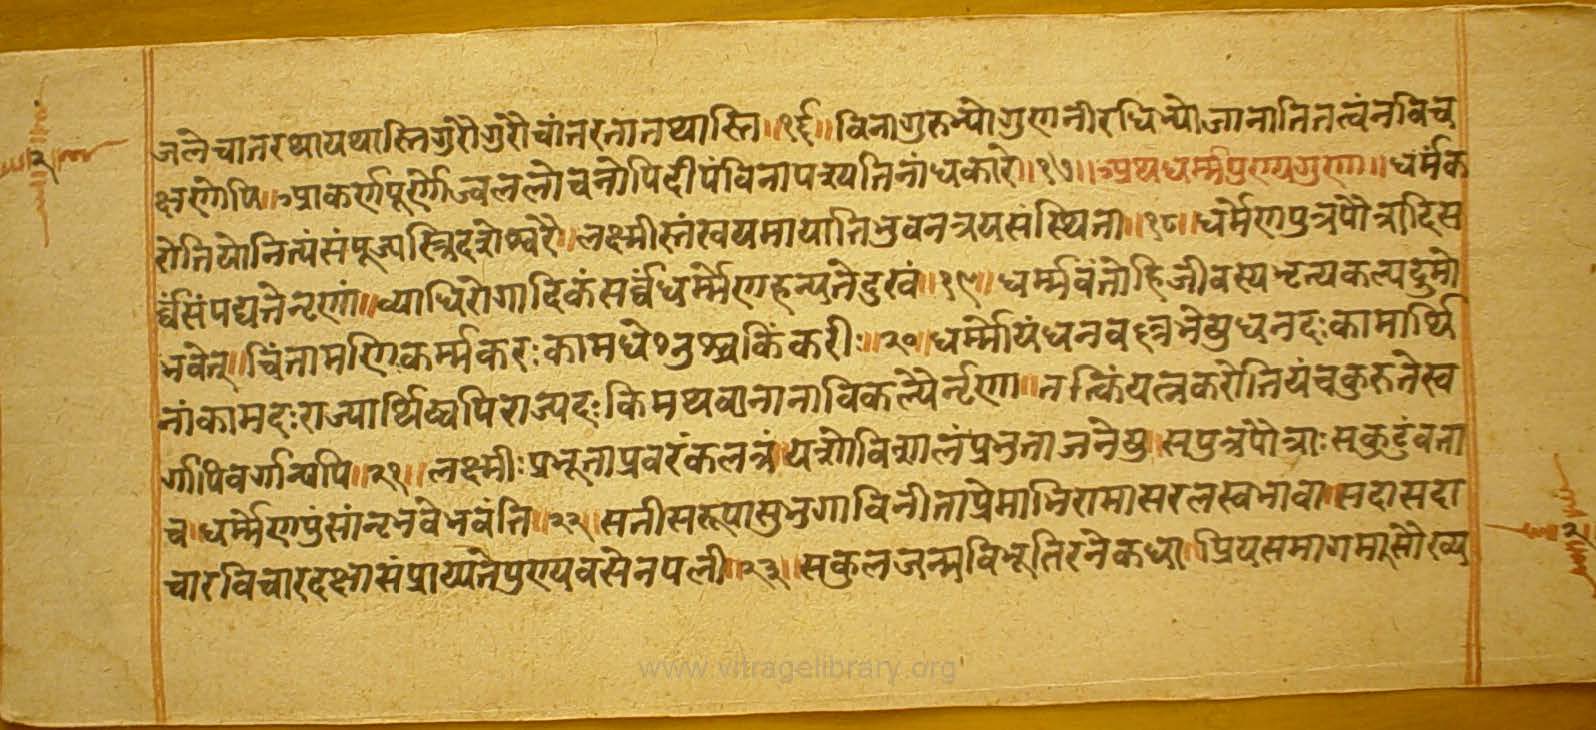 जलेचातरथायथास्तिगुरौगुरौचांतरतातथास्ति॥१६॥विनागुरुभ्योगुणनीरधिभ्योजानातितत्वंनविच
क्षणोपि॥आकर्णपूर्णोज्वललोचनोपिदीपंविनापश्यतिनांधकारे॥१७॥अथधर्म्मपुण्यगुणा॥धर्मंक
रोतियोनित्यंसंपूज्यस्त्रिदशेश्वरै॥लक्ष्मीस्तंस्वयमायातिभुवनत्रयसंस्थिता॥१८॥धर्मेणपुत्रपौत्रादिस
र्व्वंसंपद्यतेनृणां॥व्याधिरोगादिकंसर्व्वंधर्म्मेणहन्यतेदुखं॥१९॥धर्म्मवंतोहिजीवस्यभृत्यकल्पद्रुमो
भवेत्॥चिंतामणिकर्म्मकरःकामधेनुश्चकिंकरीः॥२०॥धर्म्मोयंधनवल्लभेषुधनदःकामार्थि
नांकामदःराज्यार्थिष्वपिराज्यदःकिमथवानानाविकल्पैर्नृणा॥तत्किंयत्नकरोतियंचकुरुतेस्व
र्गापिवर्गान्यपि॥२१॥लक्ष्मीःप्रभूताप्रवरंकलत्रंयशोविशालंप्रभुताजनेषु॥सुपुत्रपौत्राःसुकुटुंबता
च॥धर्म्मेणपुंसांनृभवेभवंति॥२२॥सतीसरूपासुभुगाविनीताप्रेमाभिरामासरलस्वभावा॥सदासदा
चारविचारदक्षासंप्राप्यतेपुण्यवसेनपत्नी॥२३॥सुकुलजन्मविभूतिरनेकधा॥प्रियसमागमसौख्य
२
२
www.vitragelibrary.org